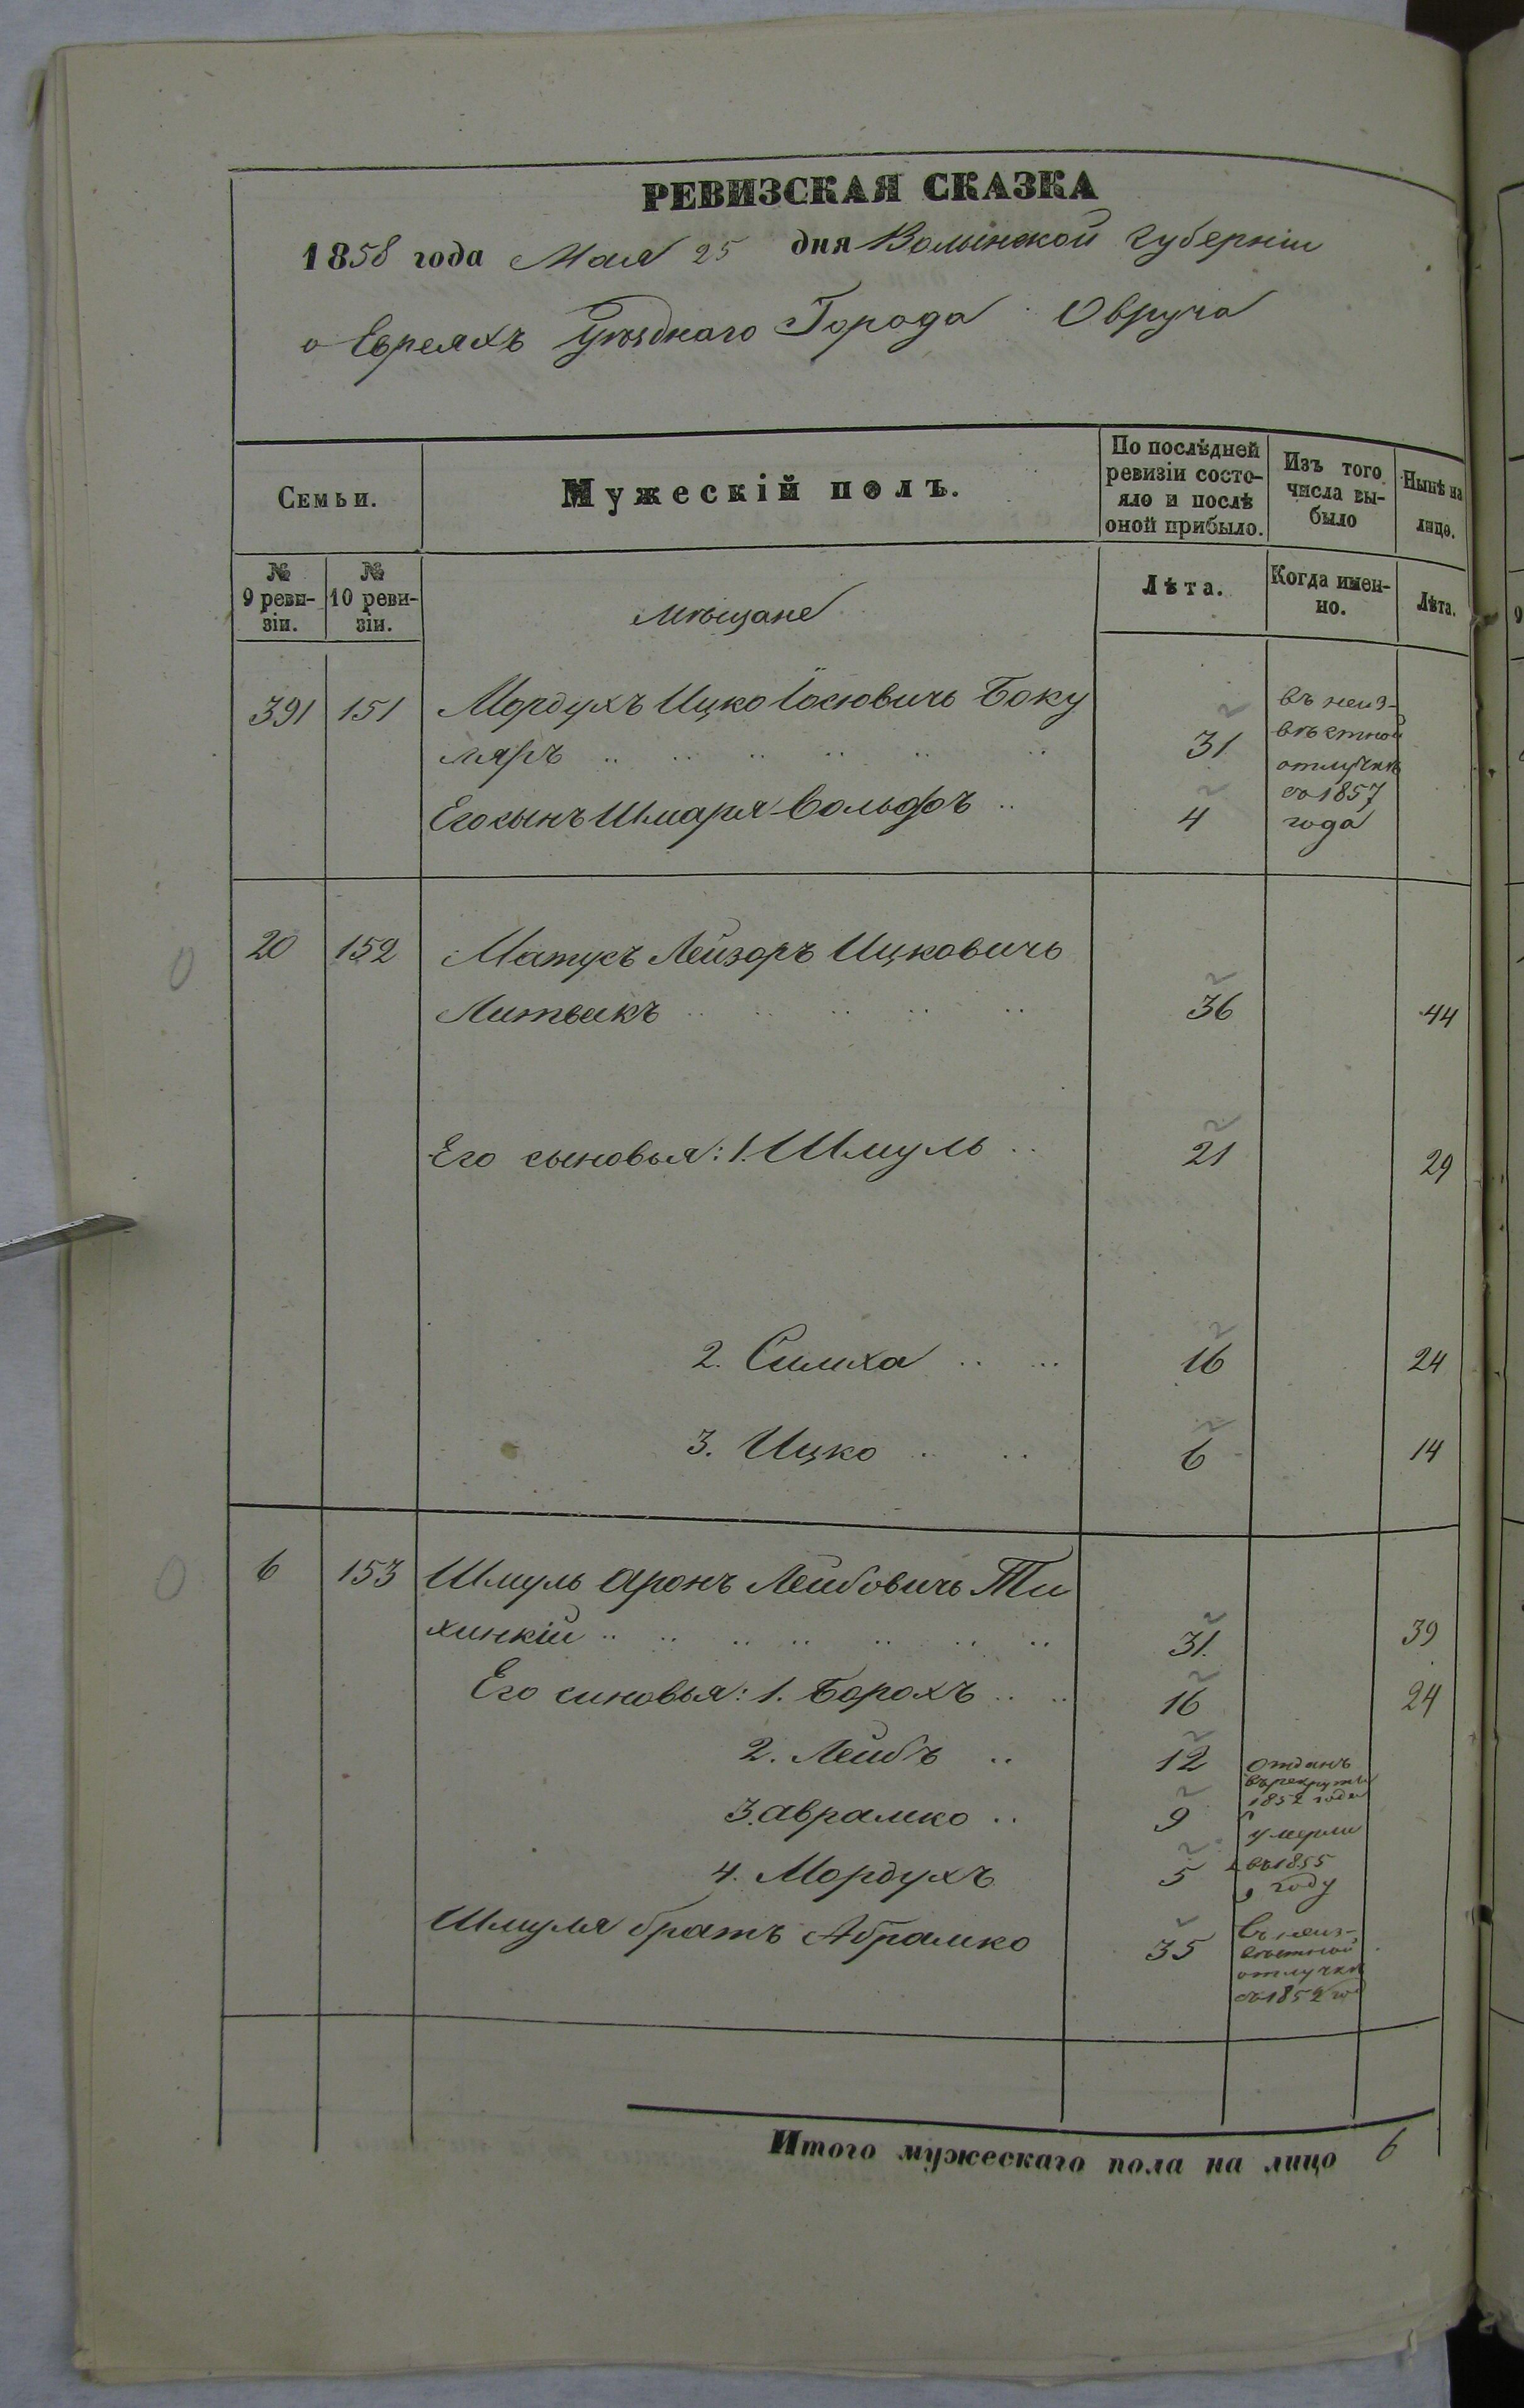 РЕВИЗСКАЯ СКАЗКА
1858 года Мая 25 дня Волынской губерніи
о Евреяхъ Уѣзднаго Города Овруча
Семьи.
Мужескій полъ.
По послѣдней
ревизіи состо-
яло и послѣ
оной прибыло.
Изъ того
числа вы-
было
Нынѣ на
лицо.
№
9 реви-
зіи.
№
10 реви-
зіи.
Мѣщане
Лѣта.
Когда имен-
но.
Лѣта.
391 151 Мордухъ Ицко Іосіовичь Боку
ляръ 31
Его сынъ Шмарія-Вольфъ 4
въ неиз-
вѣстной
отлучкѣ
съ 1857
года
20 152 Матусъ Лейзоръ Ицковичь
Литвакъ 36 44
Его сыновья: 1. Шмуль 21 29
2. Симха 16 24
3. Ицко 6 14
6 153 Шмуль Аронъ Лейбовичь Ти
хинкій 31 39
Его синовья: 1. Борохъ 16 24
2. Лейбъ 12 отданъ
въ рекруты
1852 года
3. Аврамко 9 умерли
4. Мордухъ 5 въ 1855
году
Шмуля братъ Абрамко 35 въ неиз-
вѣстной
отлучкѣ
съ 1852 год
Итого мужескаго пола на лицо 6